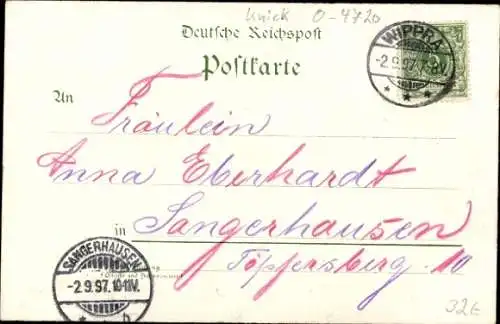 Knick O-4720
Deutsche Reichspost
Postkarte
WIPPRA
-2.9.97.7-8V.
An
Fräulein
Anna Eberhardt
in Sangerhausen
Töpfersberg. 10
SANGERHAUSEN
-2.9.97.10-11V.
32€